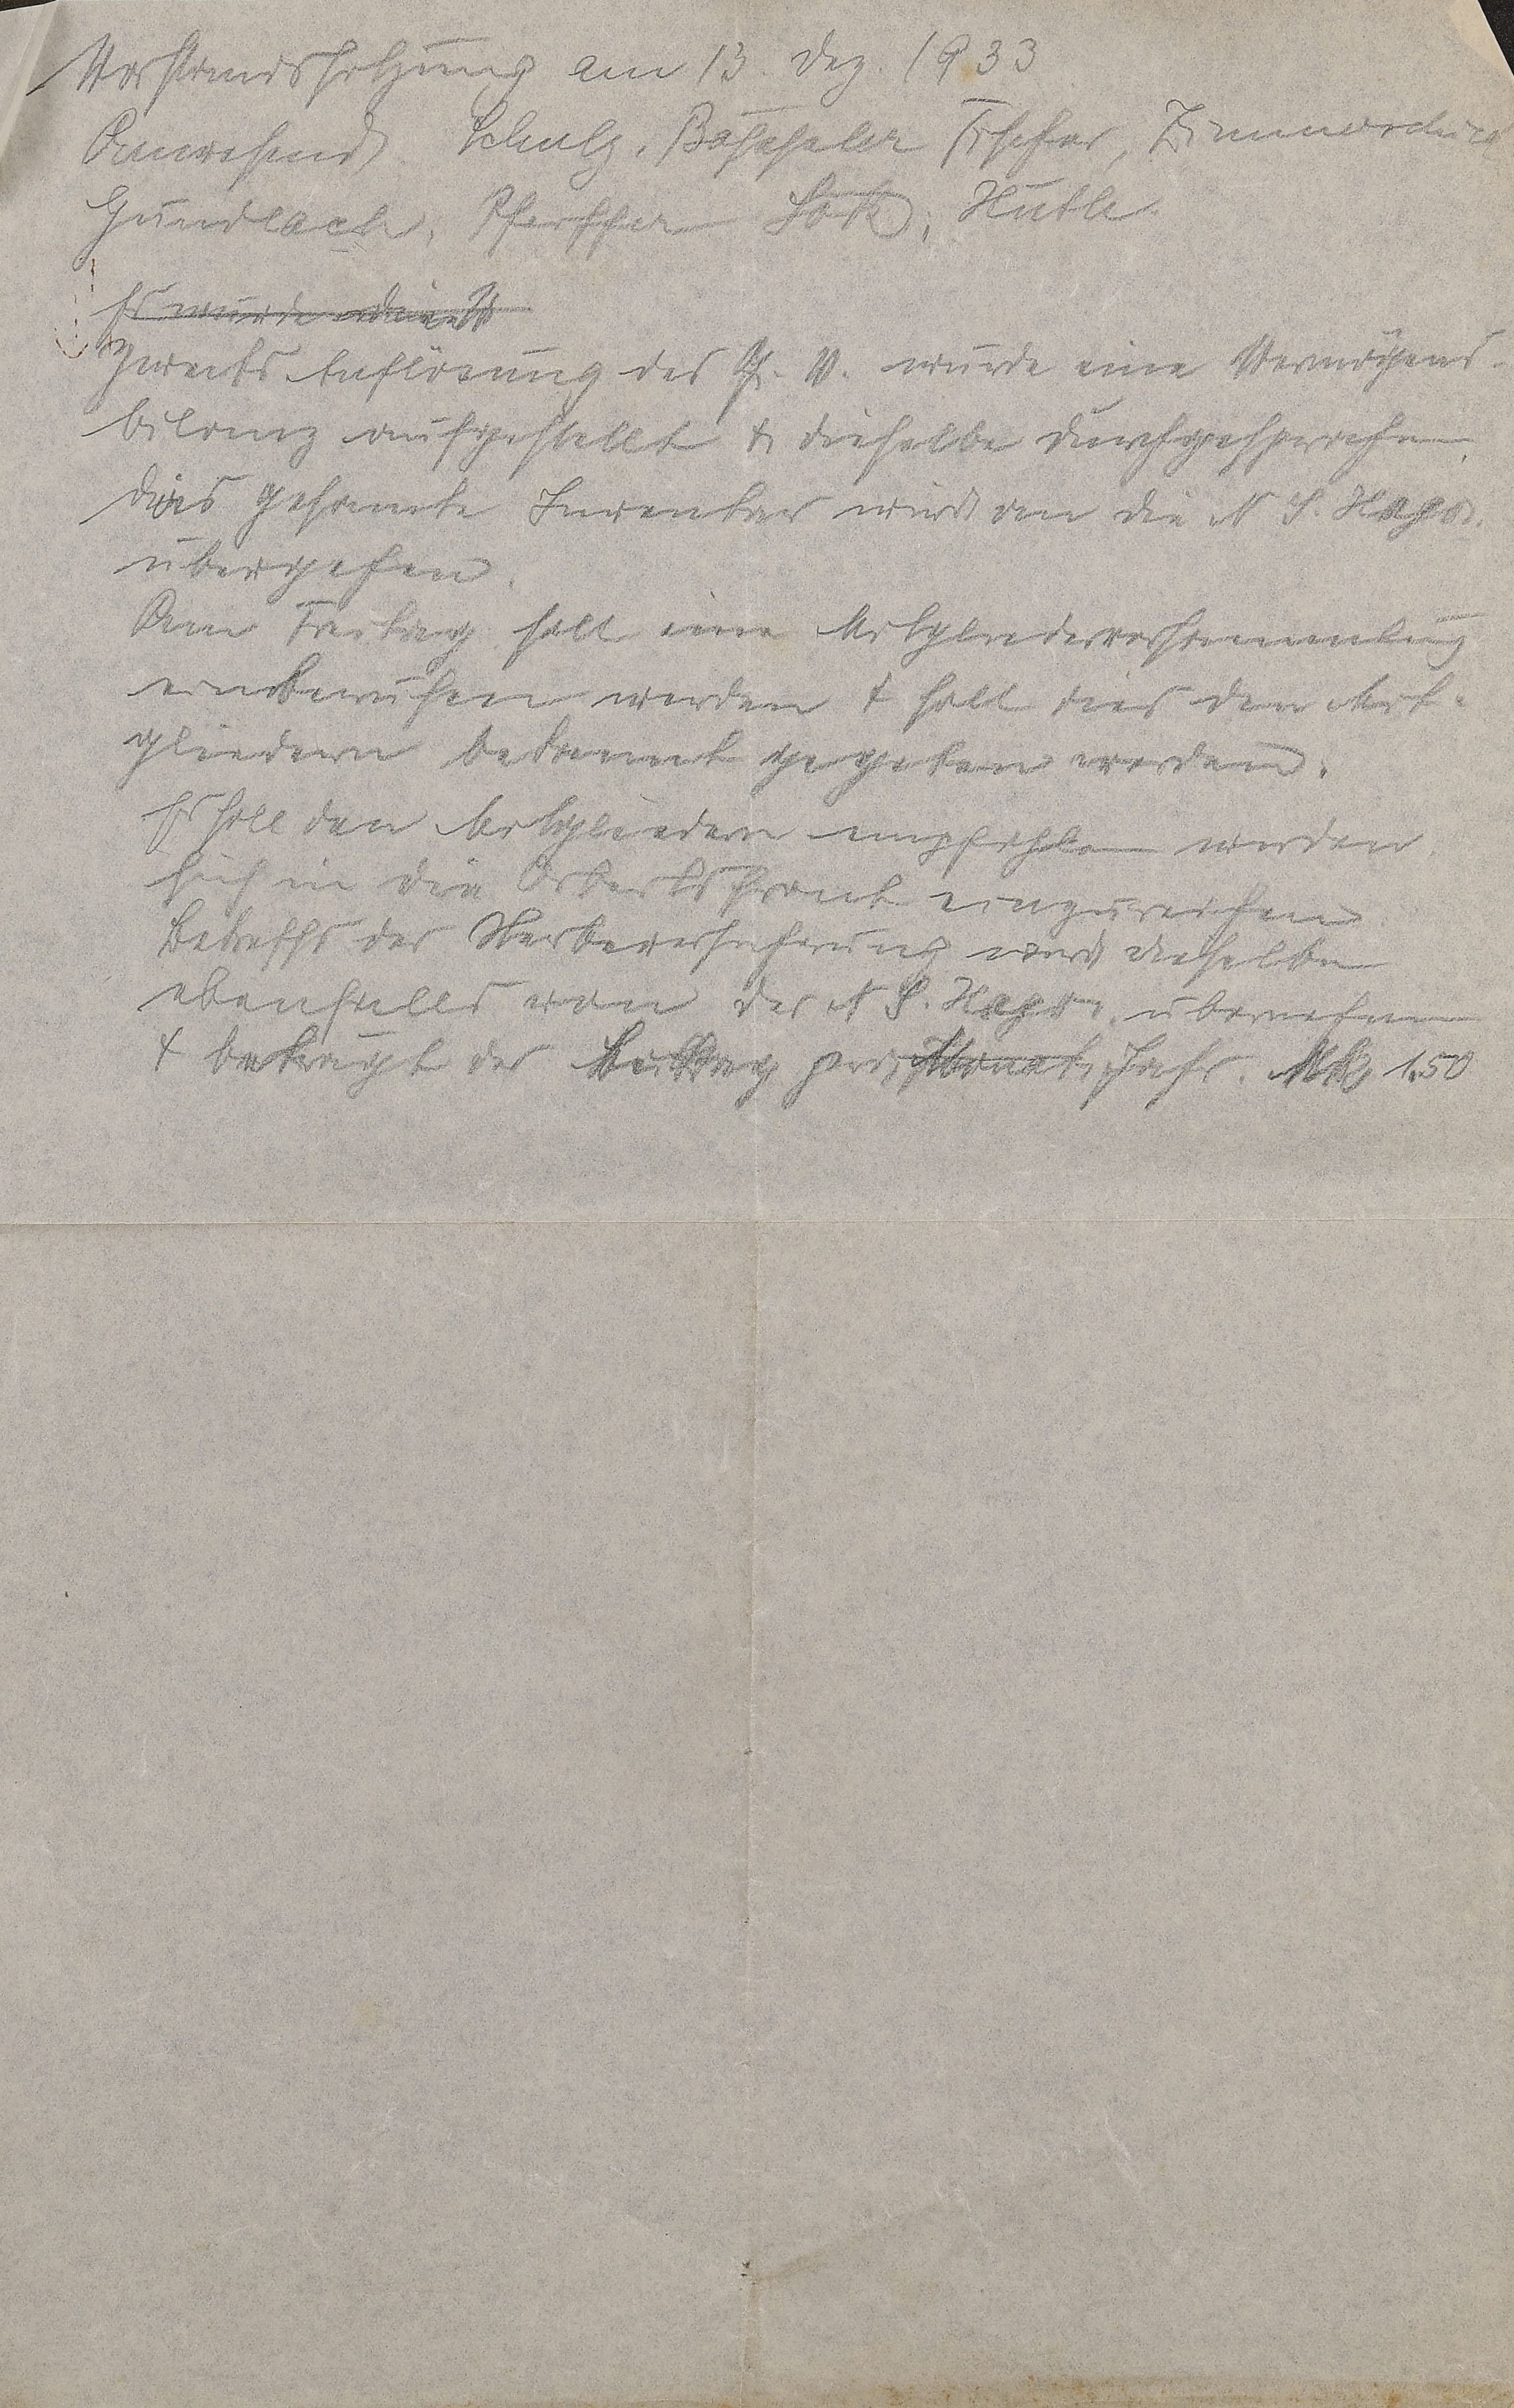 Vorstandssitzung am 13. Dez. 1933
Anwesend Schulz, Bässeler Fischer, Zimmerdin
Gundlach, Pfeiffer Hutle
Es wurde
Zwecks Auflösung des G. V. wurde eine Vermögens-
bilanz aufgestellt & dieselbe durchgesprochen.
Das gesamte Inventar wird an die N S. Hago.
übergehen.
Am Freitag soll eine Mitgliederversammlung
einberufen werden & soll dies den Mit-
gliedern bekannt gegeben werden.
Es soll den Mitgliedern empfohlen werden,
sich in die Arbeitsfront einzureihen
Betreffs der Sterbeversicherung wird dieselbe
ebenfalls von der N S. Hago. übernehmen
& beträgt der Beitrag pro Monat Jahr. Mk 1.50